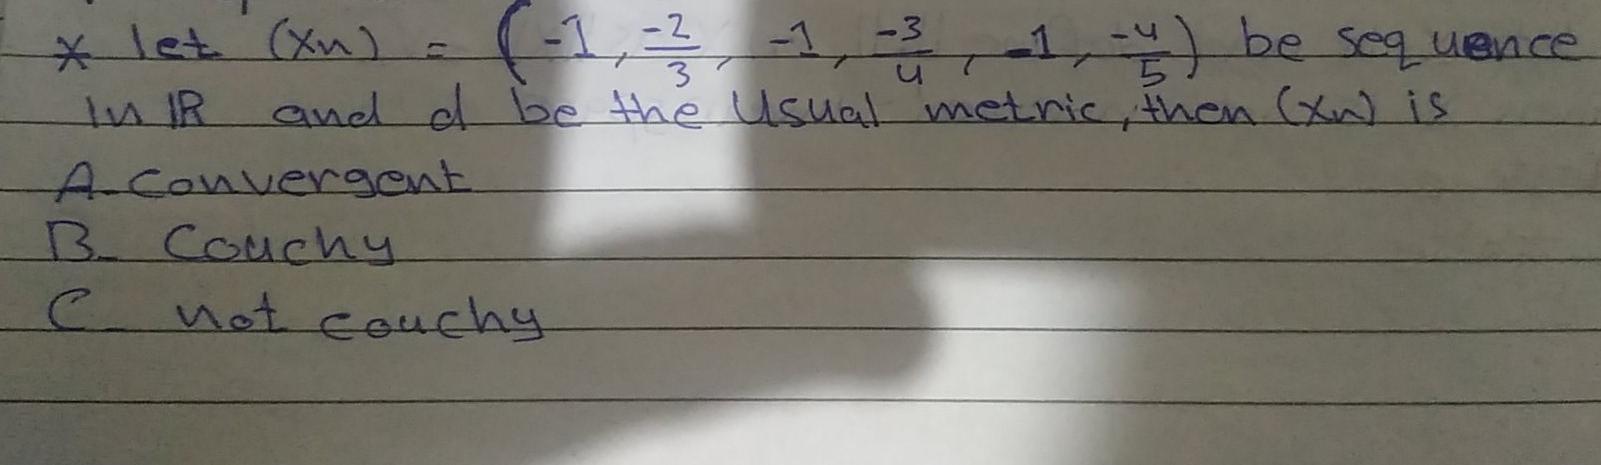 * let (xn) = (-1, -2/3, -1, -3/4, -1, -4/5) be sequence
in IR and d be the Usual metric, then (xn) is
A- convergent
B- Couchy
C- not couchy